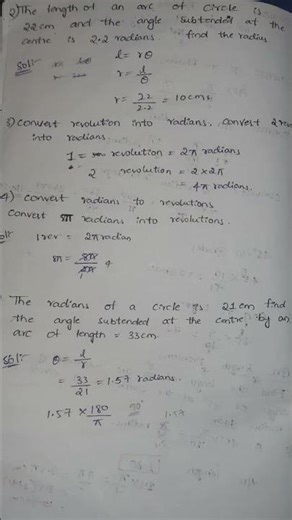 2) The length of an arc of circle is
22cm and the angle subtended at the
centre is 2.2 radians find the radius
Sol:-
l = rθ
r = l/θ
r = 22/2.2 = 10cms
3) convert revolution into radians. convert 2 rev
into radians.
1 = revolution = 2π radians
2 revolution = 2 x 2π
= 4π radians.
4) convert radians to revolutions
convert 8π radians into revolutions.
1 rev = 2π radian
8π = 8π/2π 4
The radians of a circle is 21cm find
the angle subtended at the centre, by an
arc of length = 33cm.
Sol:- θ = l/r
= 33/21 = 1.57 radians.
1.57 x 180/π 90° 1.57